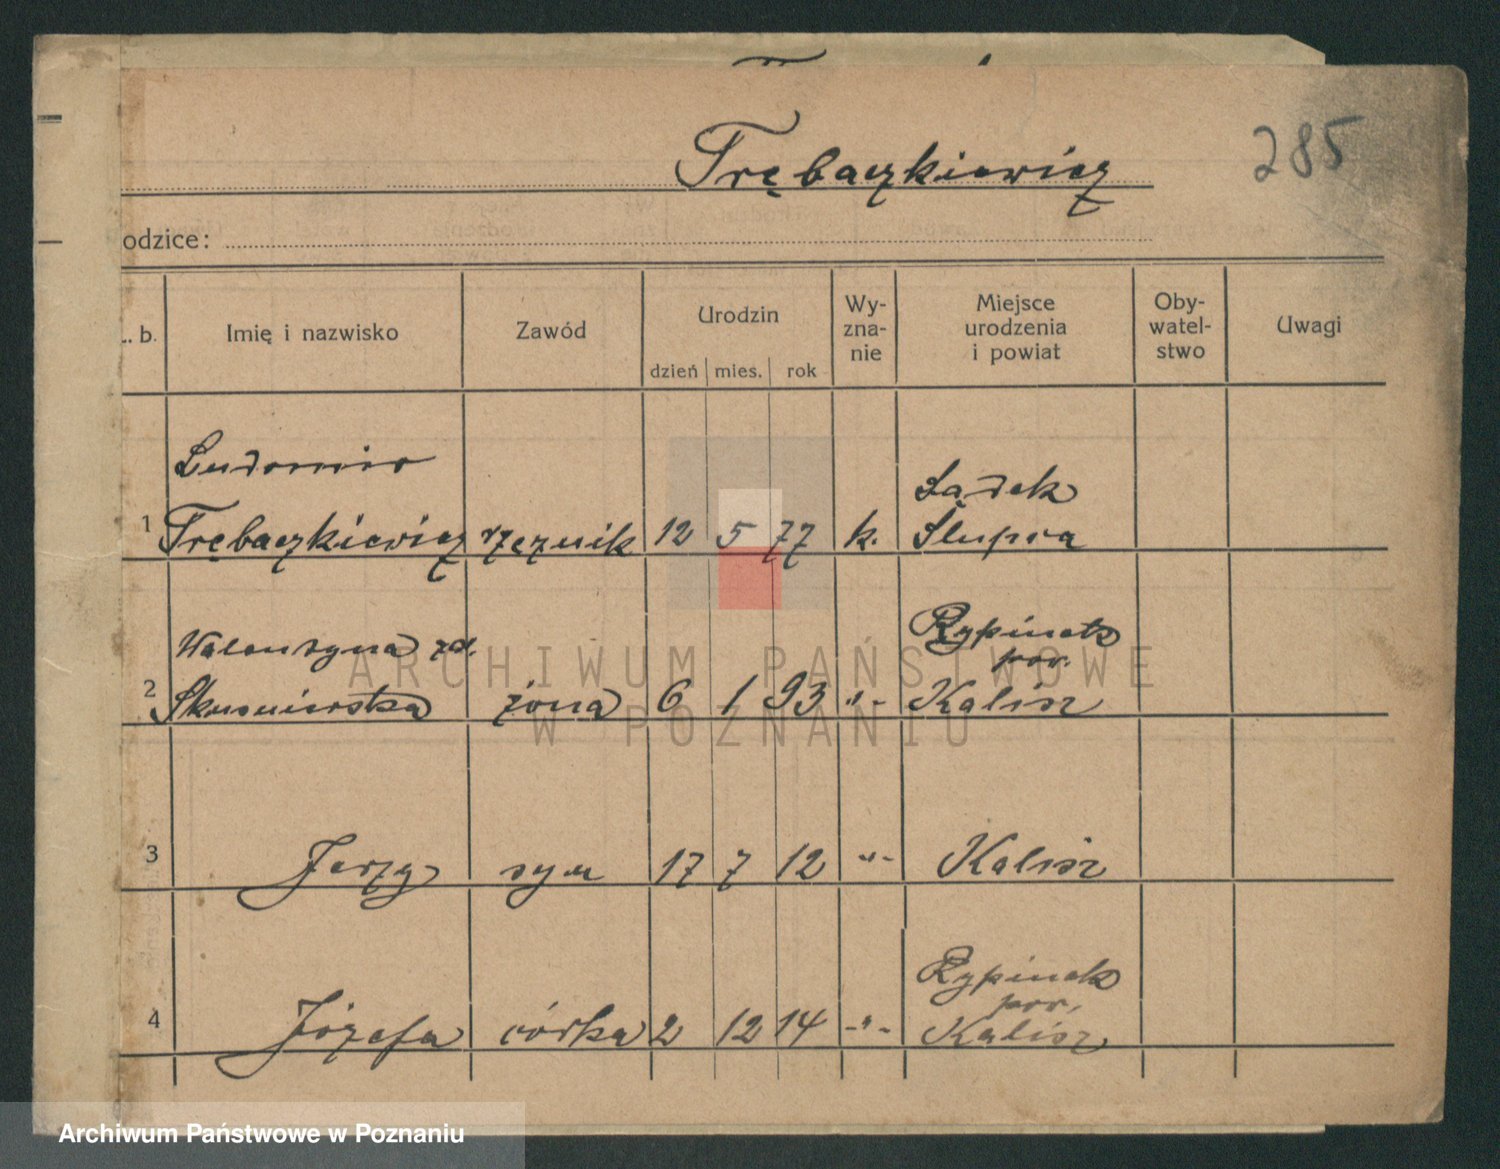 Trębaczkiewicz
285
odzice:
. b.
Imię i nazwisko
Zawód
Urodzin
dzień
mies.
rok
Wy-
zna-
nie
Miejsce
urodzenia
i powiat
Oby-
watel-
stwo
Uwagi
Ludomir
1 Trębaczkiewicz rzeznik 12 5 77 k.
Lądek
Słupca
Walentyna zd.
2 żona 6 1 93 -"-
Rypinek
pow.
Kalisz
3 Jerzy syn 17 7 12 -"- Kalisz
4 Józefa córka 2 12 14 -"-
Rypinek
pow.
Kalisz
ARCHIWUM PAŃSTWOWE
W POZNANIU
Archiwum Państwowe w Poznaniu